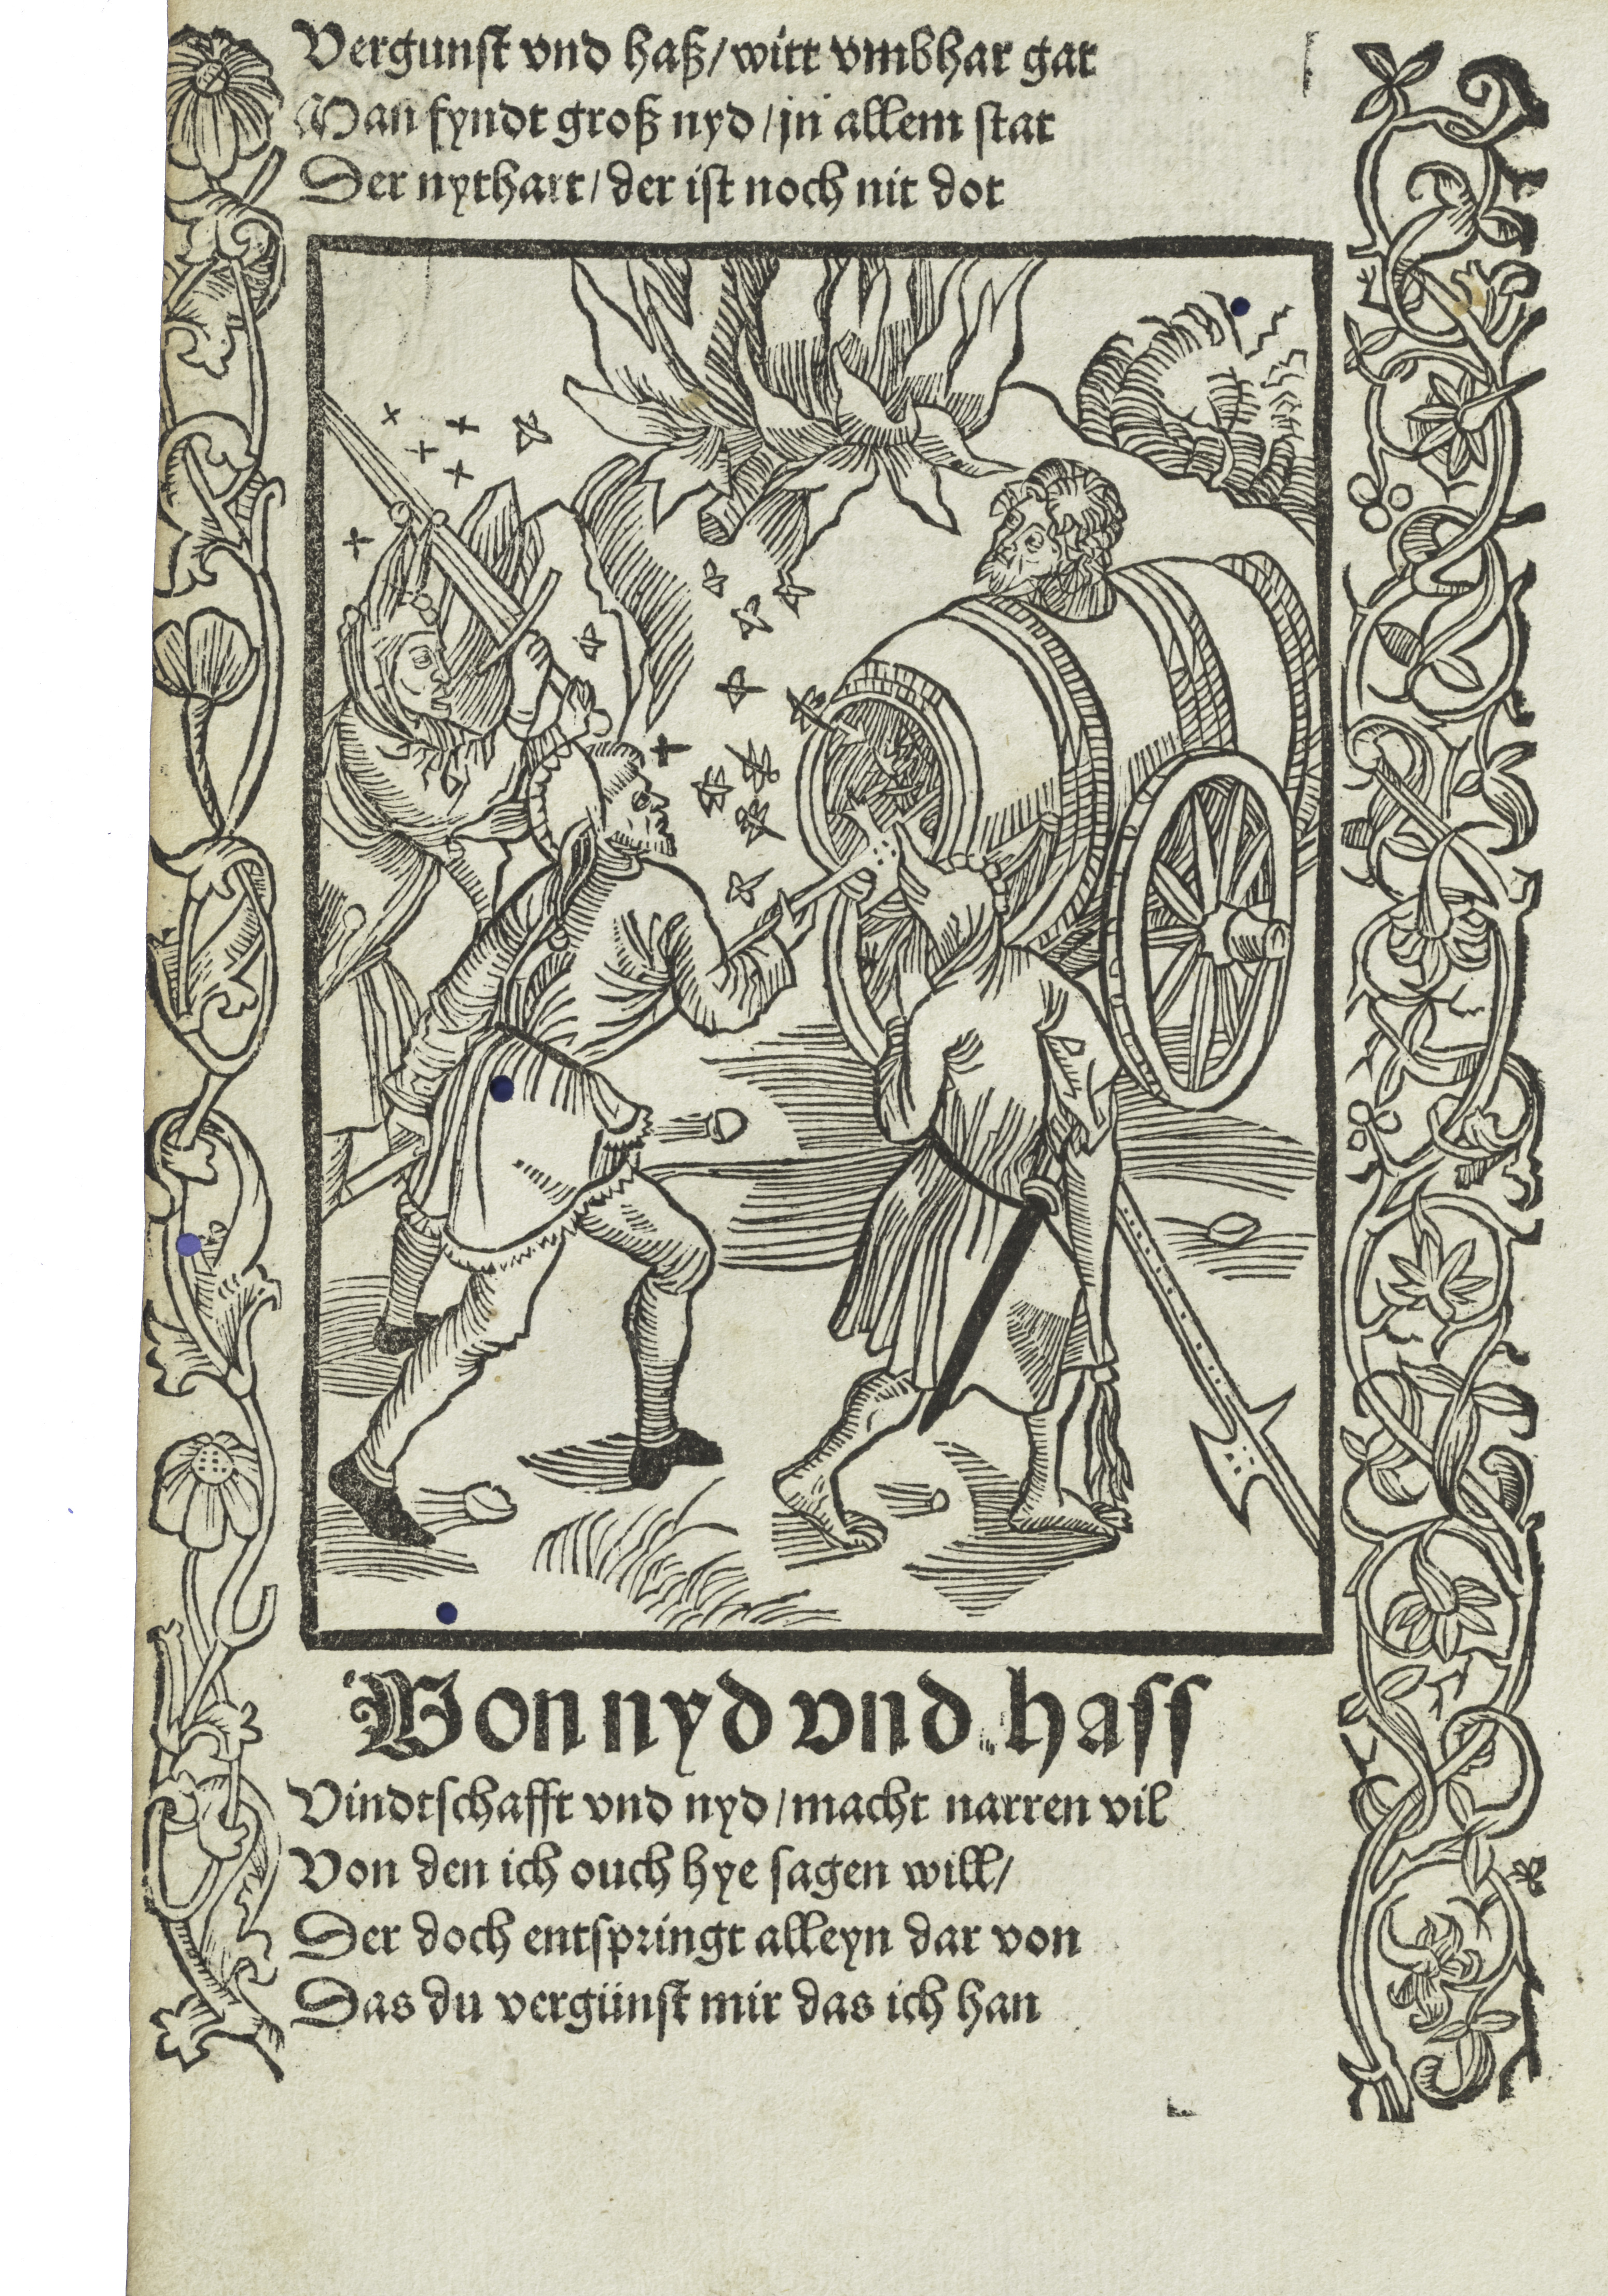 Vergunst vnd haß/witt vmbhar gat
Man fyndt groß nyd/jn allem stat
Der nythart/der ist noch nit dot
Von nyd vnd hass
Vindtschafft vnd nyd/macht narren vil
Von den ich ouch hye sagen will/
Der doch entspringt alleyn dar von
Das du vergünst mir das ich han